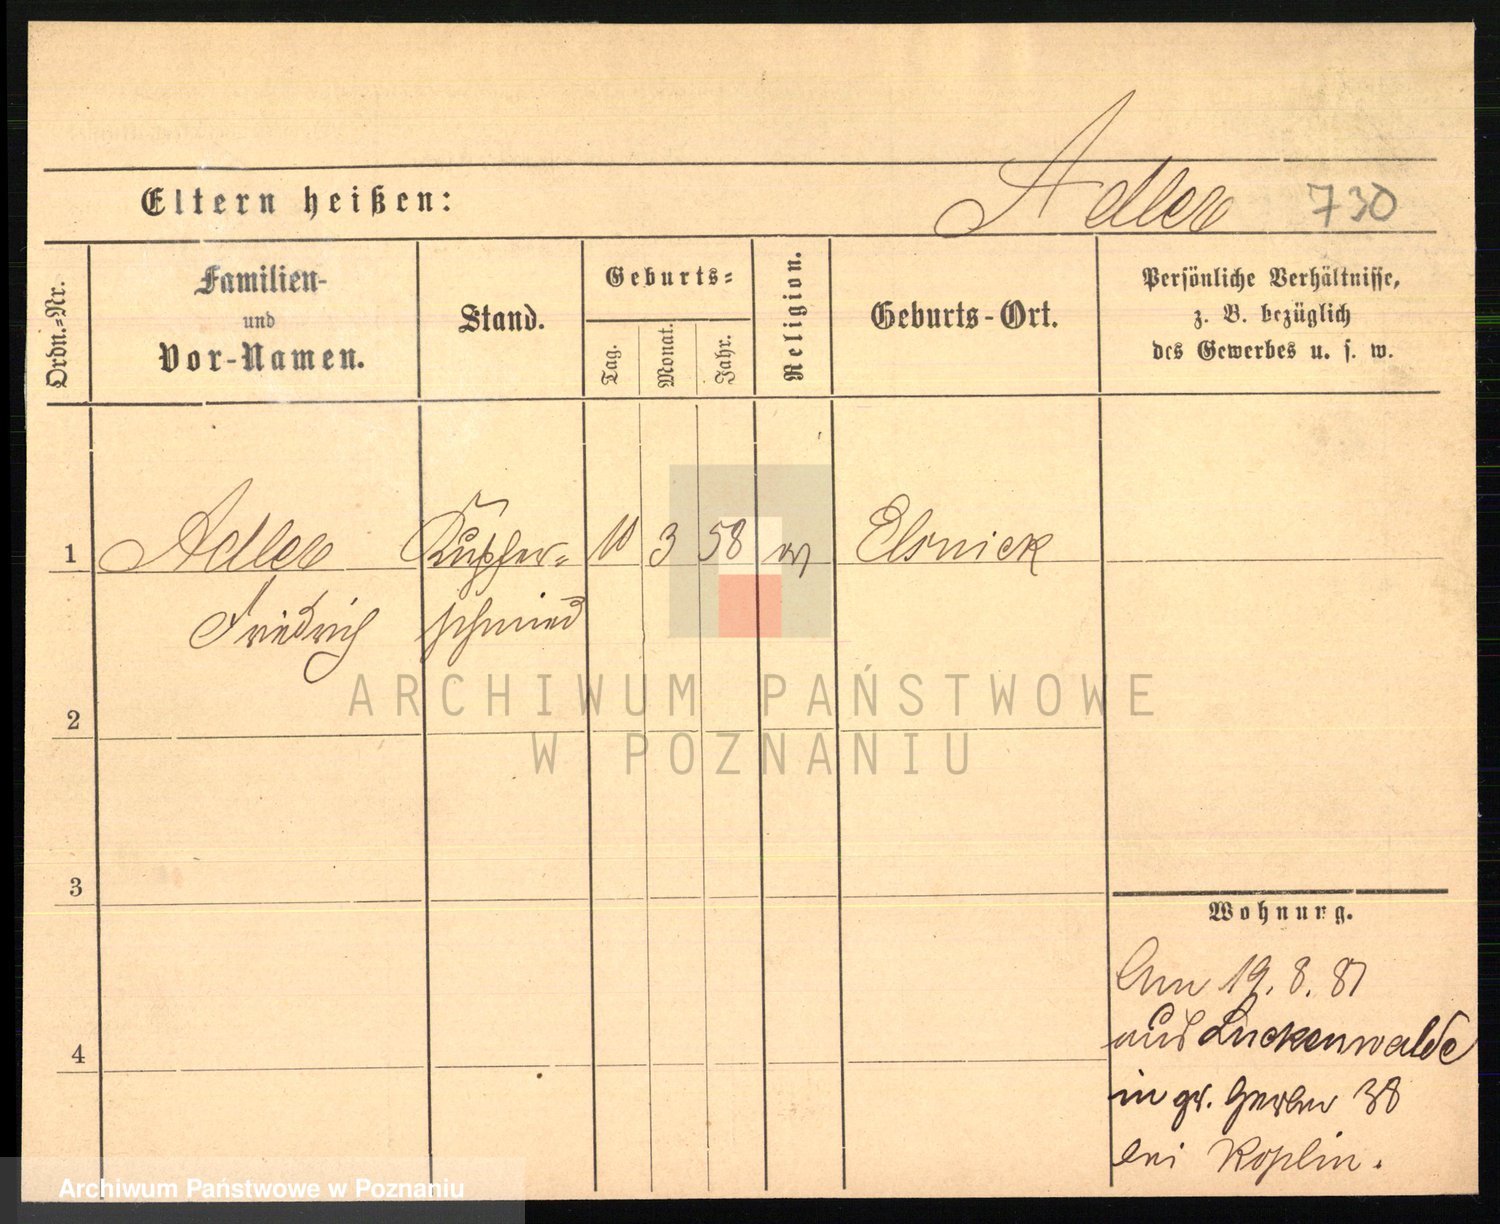 Adler 730
Eltern heißen:
Ordn.-Nr.
Familien-
und
Vor-Namen.
Stand.
Geburts-
Tag.
Monat.
Jahr.
Religion.
Geburts-Ort.
Persönliche Verhältnisse,
z. B. bezüglich
des Gewerbes u. s. w.
1 Adler Kupfer- 10 3 58 Elsnick
Friedrich schmied
ARCHIWUM PAŃSTWOWE
W POZNANIU
2
3
4
Wohnung.
Am 19. 8. 81
aus Luckenwalde
in gr. Gerber 38
bei Koplin.
Archiwum Państwowe w Poznaniu